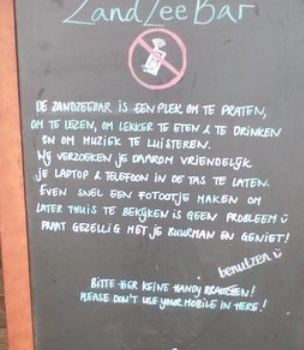 ZandZeeBar
DE ZANDZEEBAR IS EEN PLEK OM TE PRATEN,
OM TE LEZEN, OM LEKKER TE ETEN & TE DRINKEN
EN OM MUZIEK TE LUISTEREN.
WIJ VERZOEKEN JE DAAROM VRIENDELIJK
JE LAPTOP & TELEFOON IN DE TAS TE LATEN.
EVEN SNEL EEN FOTOOTJE MAKEN OM
LATER THUIS TE BEKIJKEN IS GEEN PROBLEEM
PRAAT GEZELLIG MET JE BUURMAN EN GENIET!
benutzen
BITTE HIER KEINE HANDY BRAUCHEN!
PLEASE DON'T USE YOUR MOBILE IN HERE!